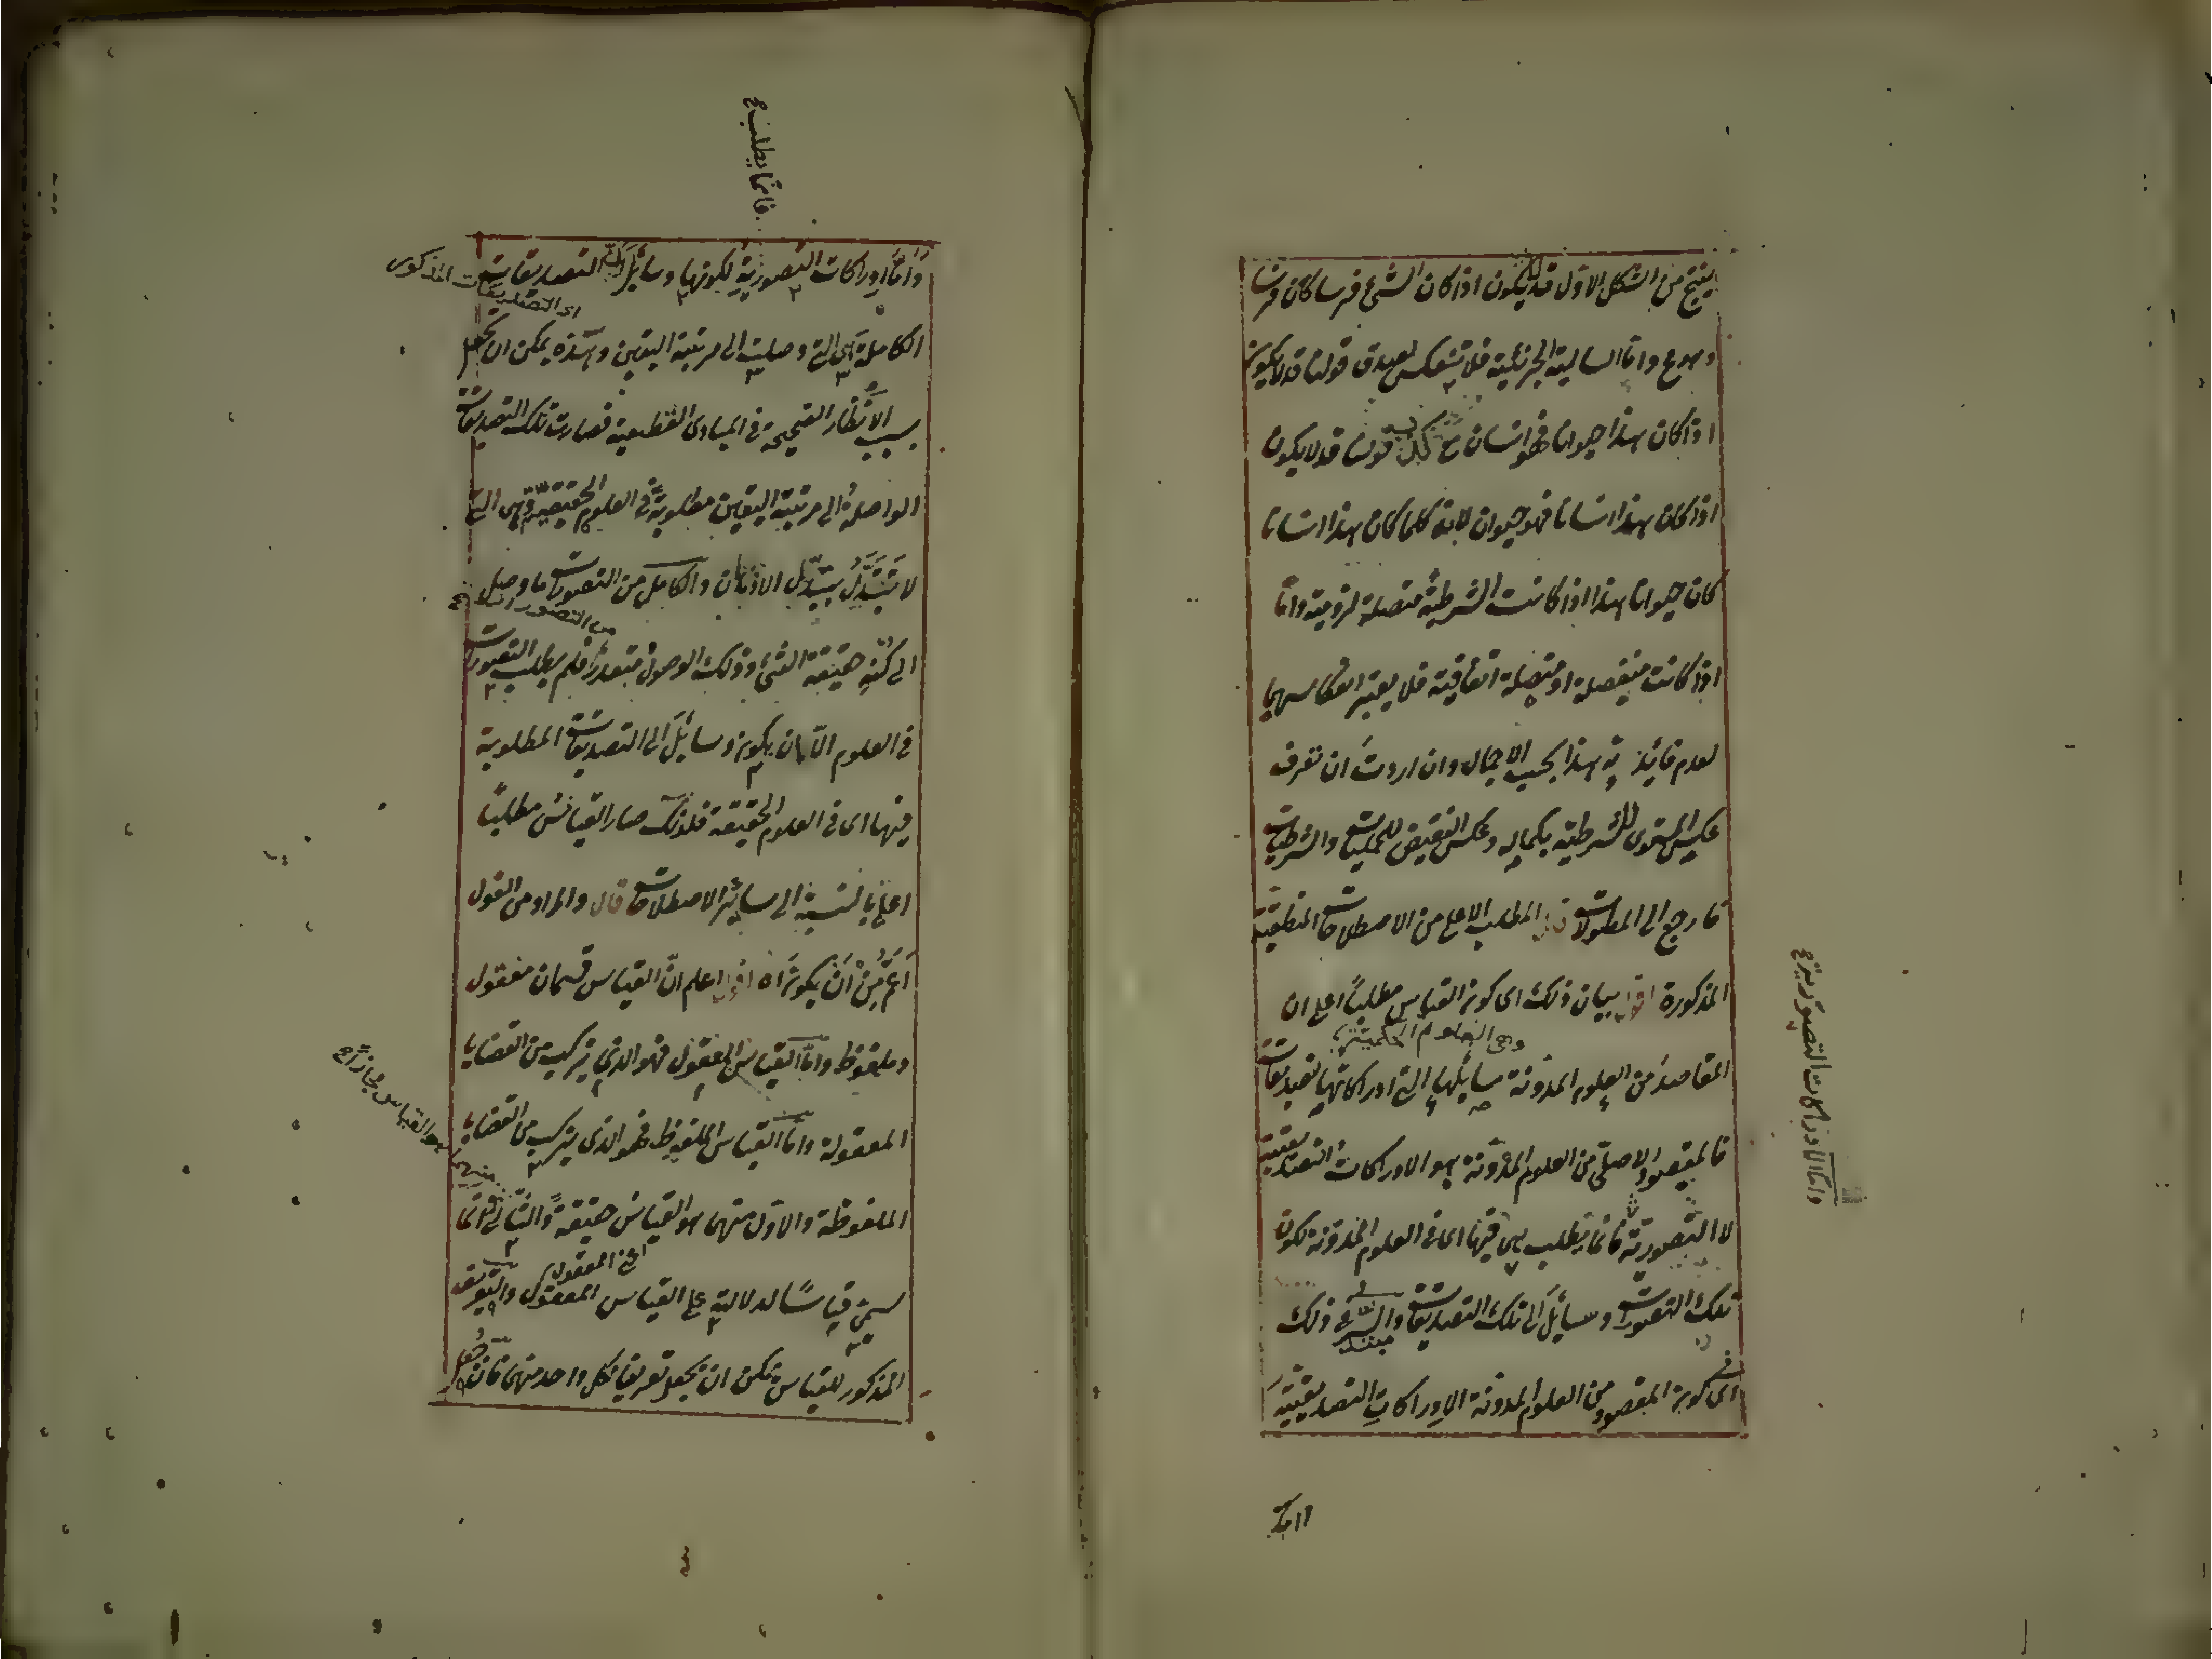 ينتج من الشكل الاول قد لايكون اذا كان الشئ فرسا كان فرسا
وهو ع واما السالبة الجزئية فلا تنعكس لصدق قولنا قد لايكون
اذا كان هذا حيوانا فهو انسان مع كذب قولنا قد لا يكون
اذا كان هذا انسانا فهو حيوان لانه كلما كان هذا انسانا
كان حيوانا هذا اذا كانت الشرطية متصلة لزومية واما
اذا كانت منفصلة او متصلة اتفاقية فلا يعتبر انعكاسهما
لعدم فائدته هذا بحسب الاجمال وان اردت ان تعرف
عكس المستوى للشرطية بكماله وعكس النقيض للحمليات والشرطيات
فارجع الى المطولات قال المطلب الاعلى من الاصطلاحات المنطقية
المذكورة اقول بيان ذلك اى كون القياس مطلبا اعلى ان
وهى العلوم الحكمية
المقاصد من العلوم المدونة مسايلها التى ادراكاتها تصديقات
فالمقصود الاصلى من العلوم المدونة هو الادراكات التصديقية
لا التصورية فانما يطلب هى فيها اى فى العلوم المدونة لكون
تلك التصورات وسائل الى تلك التصديقات والسر فى ذلك
اى كون المقصود من العلوم المدونة الادراكات التصديقية
واما الادراكات التصورية
فانما يطلب
واما ادراكات التصورية لكونها وسائل الى التصديقات
اى التصديقات المذكور
الكاملة هى التى وصلت الى مرتبة اليقين وهذه يمكن ان يحصل
بسبب الانظار الصحيحة فى المبادى القطعية فصارت تلك التصديقات
الواصلة الى مرتبة اليقين مطلوبة فى العلوم الحقيقية وهى التى
لا تتبدل بتبدل الاذهان والكامل من التصورات ما وصل
من التصورات
الى كنه حقيقة الشئ وذلك الوصول متعذر فلم يطلب التصورات
فى العلوم الا لان يكون وسائل الى التصديقات المطلوبة
فيها اى فى العلوم الحقيقة فلذلك صار القياس مطلبا
اعلى بالنسبة الى سائر الاصطلاحات قال والمراد من القول
اعم من ان يكون اه اقول اعلم ان القياس قسمان معقول
وملفوظ واما القياس المعقول فهو الذى يتركب من القضايا
المعقولة واما القياس الملفوظ فهو الذى يتركب من القضايا
الملفوظة والاول منهما هو القياس حقيقة والثانى انما
هو القياس مجازا
اعنى المعقول
سمى قياسا لدلالته على القياس المعقول والتعريف
المذكور للقياس يمكن ان يجعل تعريفا لكل واحد منهما فان جعل